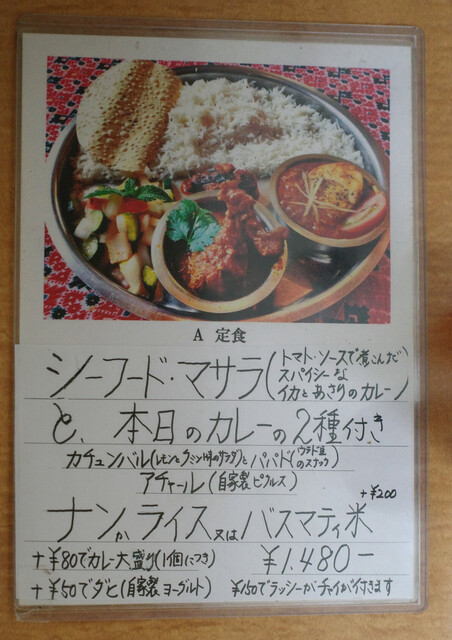 A 定食
シーフード・マサラ(トマト・ソースで煮こんだ
スパイシーな
イカとあさりのカレー)
と、本日のカレーの2種付き
カチュンバル(レモンとクミン味のサラダ)とパパド(ウラド豆のスナック)
アチャール(自家製ピクルス)
+¥200
ナンかライス又はバスマティ米
+¥80でカレー大盛り(1個につき) ¥1,480-
+¥50でダヒ(自家製ヨーグルト) ¥150でラッシーかチャイが付きます